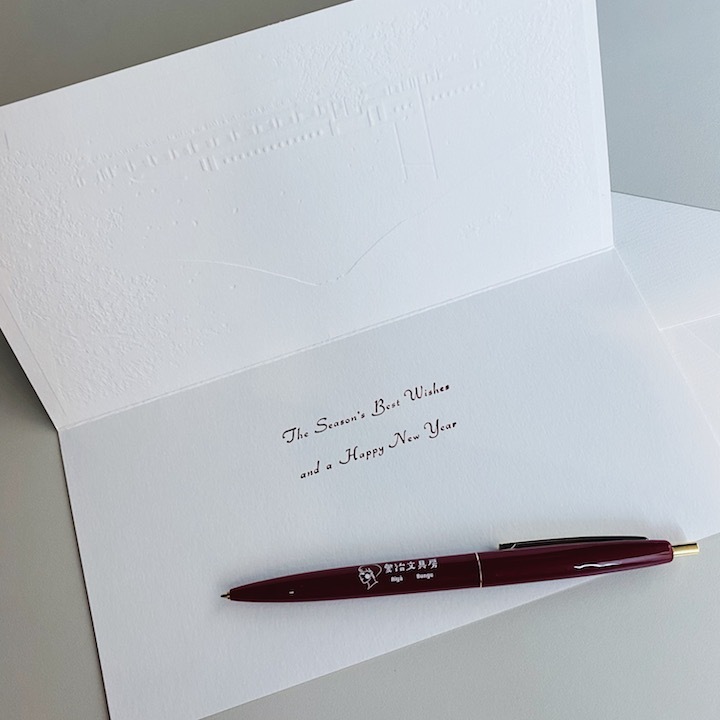 The Season's Best Wishes
and a Happy New Year
文具房
Bungu